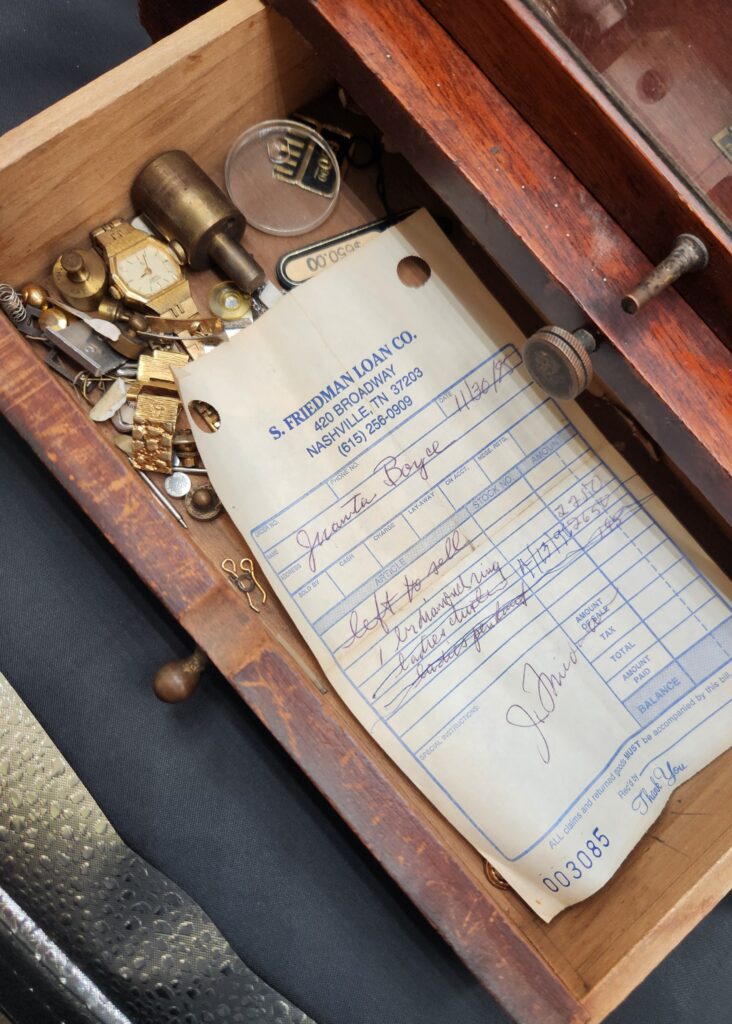 $650.00
S. FRIEDMAN LOAN CO.
420 BROADWAY
NASHVILLE, TN 37203
(615) 256-0909
DATE 11/30/95
ORDER NO. PHONE NO.
NAME Juanta Boyce
ADDRESS
SOLD BY CASH CHARGE LAY-AWAY ON ACCT. MDSE. RETD.
ARTICLE STOCK NO. AMOUNT
left to sell
1 diamond ring
ladies cluster
ladies pendant
AMOUNT
TAX
TOTAL
AMOUNT
PAID
BALANCE
SPECIAL INSTRUCTIONS:
ALL claims and returned goods MUST be accompanied by this bill.
Rec'd by
Thank You
003085